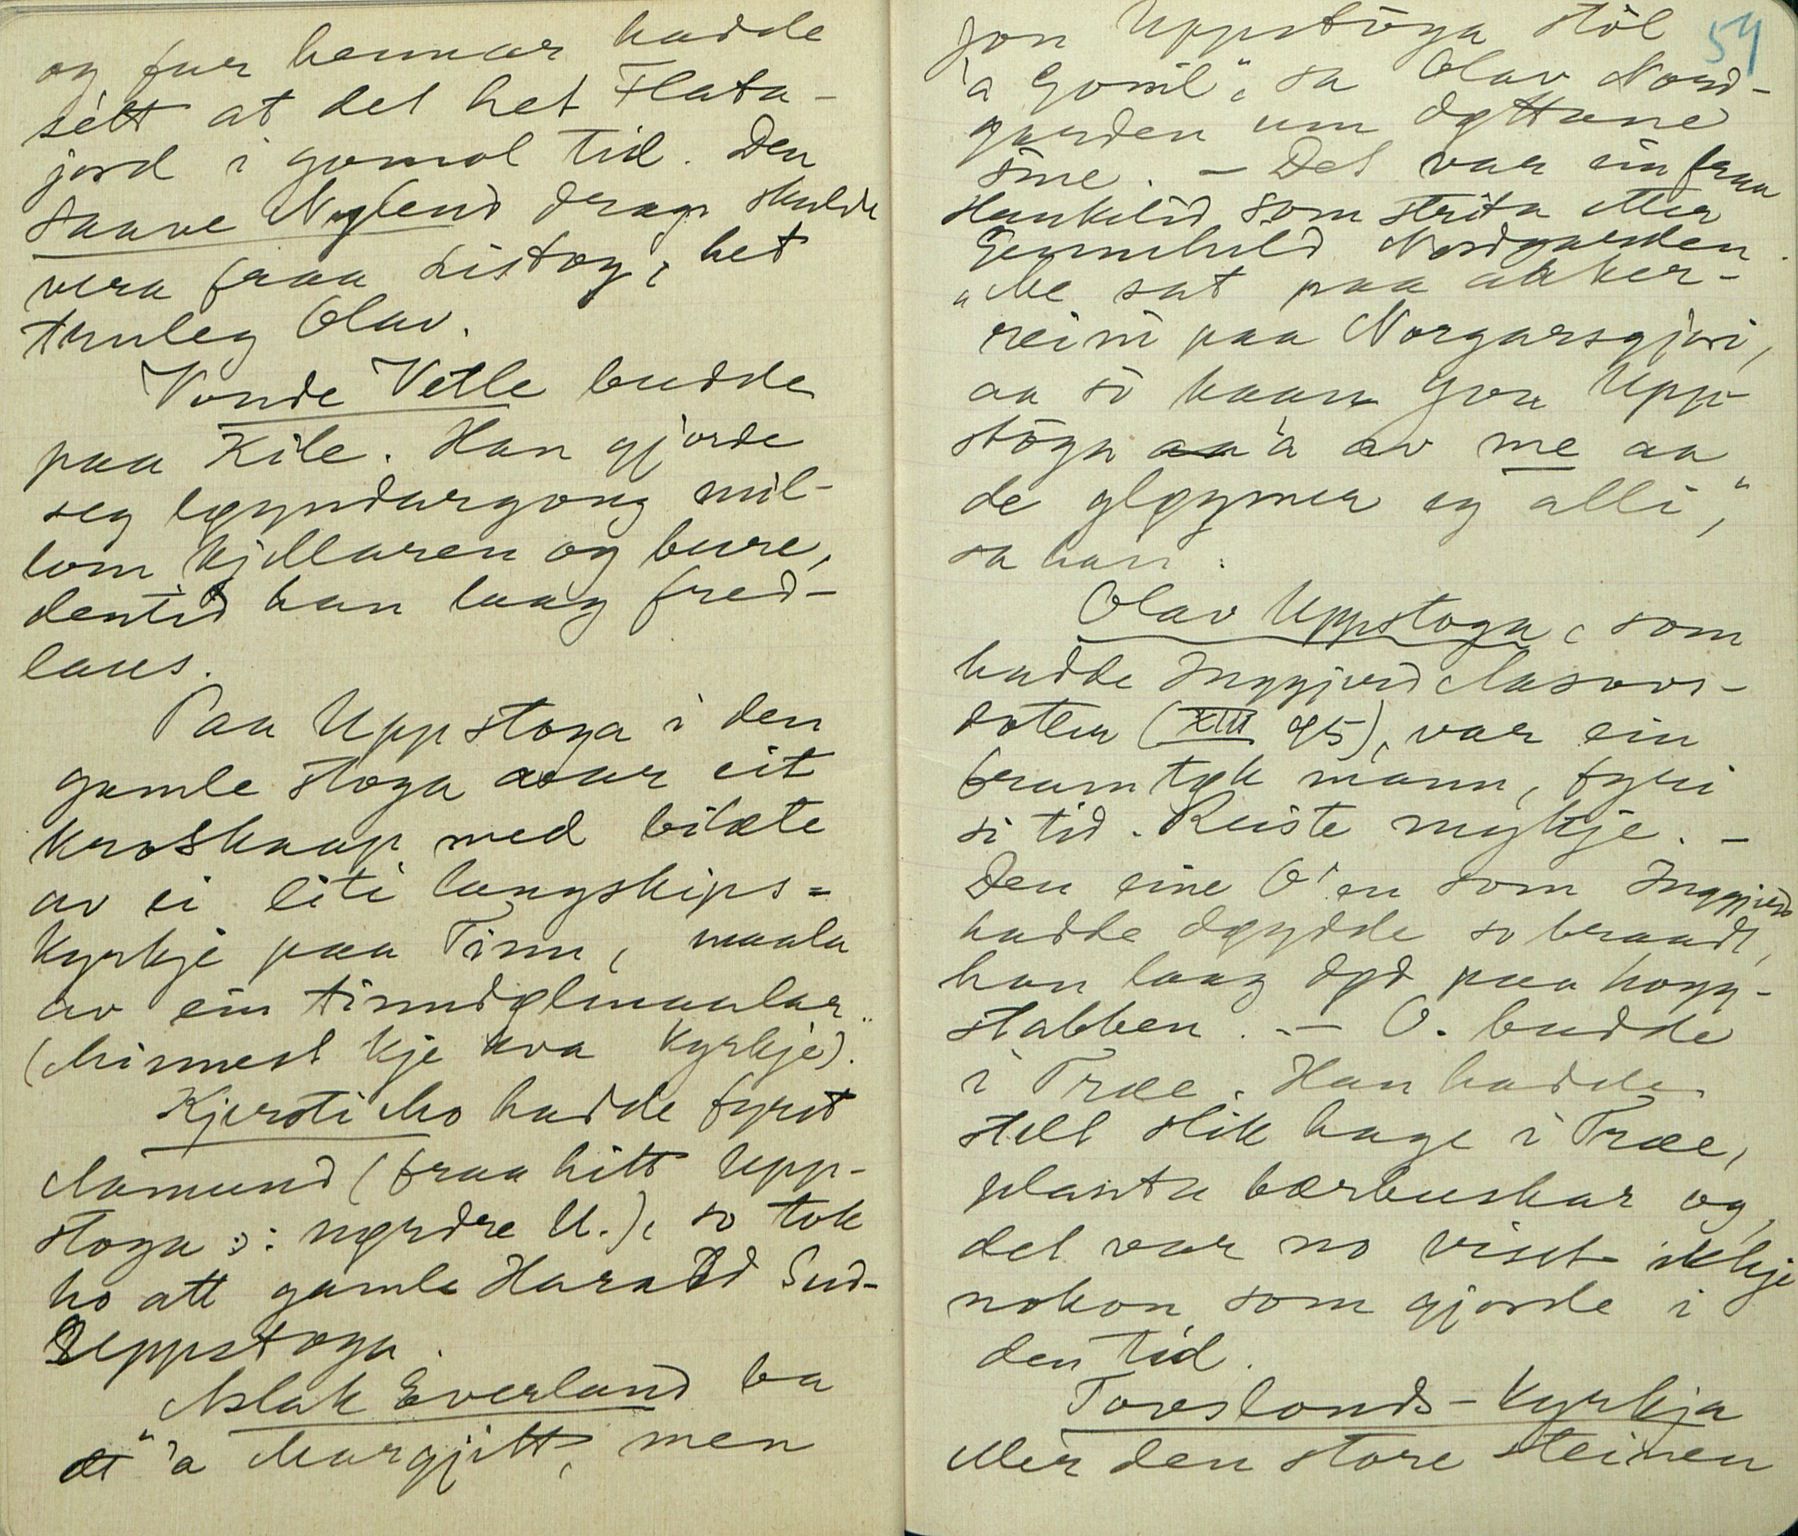 og far hennar hadde
sétt at det het Flata-
jord i gomol tid. Den
saave Nylend drap skulde
vera fraa Listog, het
truleg Olav.
Vonde Vetle budde
paa Kile. Han gjorde
seg løyndargong mil-
lom kjellaren og bure,
dentid han laag fred-
laus.
Paa Uppstoga i den
gamle stoga var eit
kroskaap med bilæte
av ei liti langskips-
kyrkje paa Tinn, maala
av ein tinndølmaalar.
(Minnest kje kva kyrkje).
Kjersti Mo hadde fyrst
Aamund (fraa hitt Upp-
stoga ɔ: nørdre U.), so tok
ho att gamle Harald Sud-
Uppstoga.
Aslak Everland ba
"at 'a Margjitt, men
54
Jon Uppstöga stöl
'a Gomil", sa Olav Nord-
garden um døttane
sine. – Det var ein fraa
Haukelid som strita etter
Gunnhild Nordgarden.
"Me sat paa aaker-
reini paa Norgarsgjori,
aa so kaam Jon Upp-
stöga 'a av me aa
de gløymer eg alli",
sa han.
Olav Uppstoga, som
hadde Inggjerd Aasovs-
dotter (XIII 95), var ein
framtøk mann, fyri
si tid. Reiste mykje. –
Den eine O'en som Inggjerd
hadde døydde so braadt,
han laag død paa hogg-
stabben. – O. budde
i Træe. Han hadde
stelt slik hage i Træe,
planta bærbuskar og
det var no visst ikkje
nokon som gjorde i
den tid.
Tovslonds-kyrkja
Der den store steinen